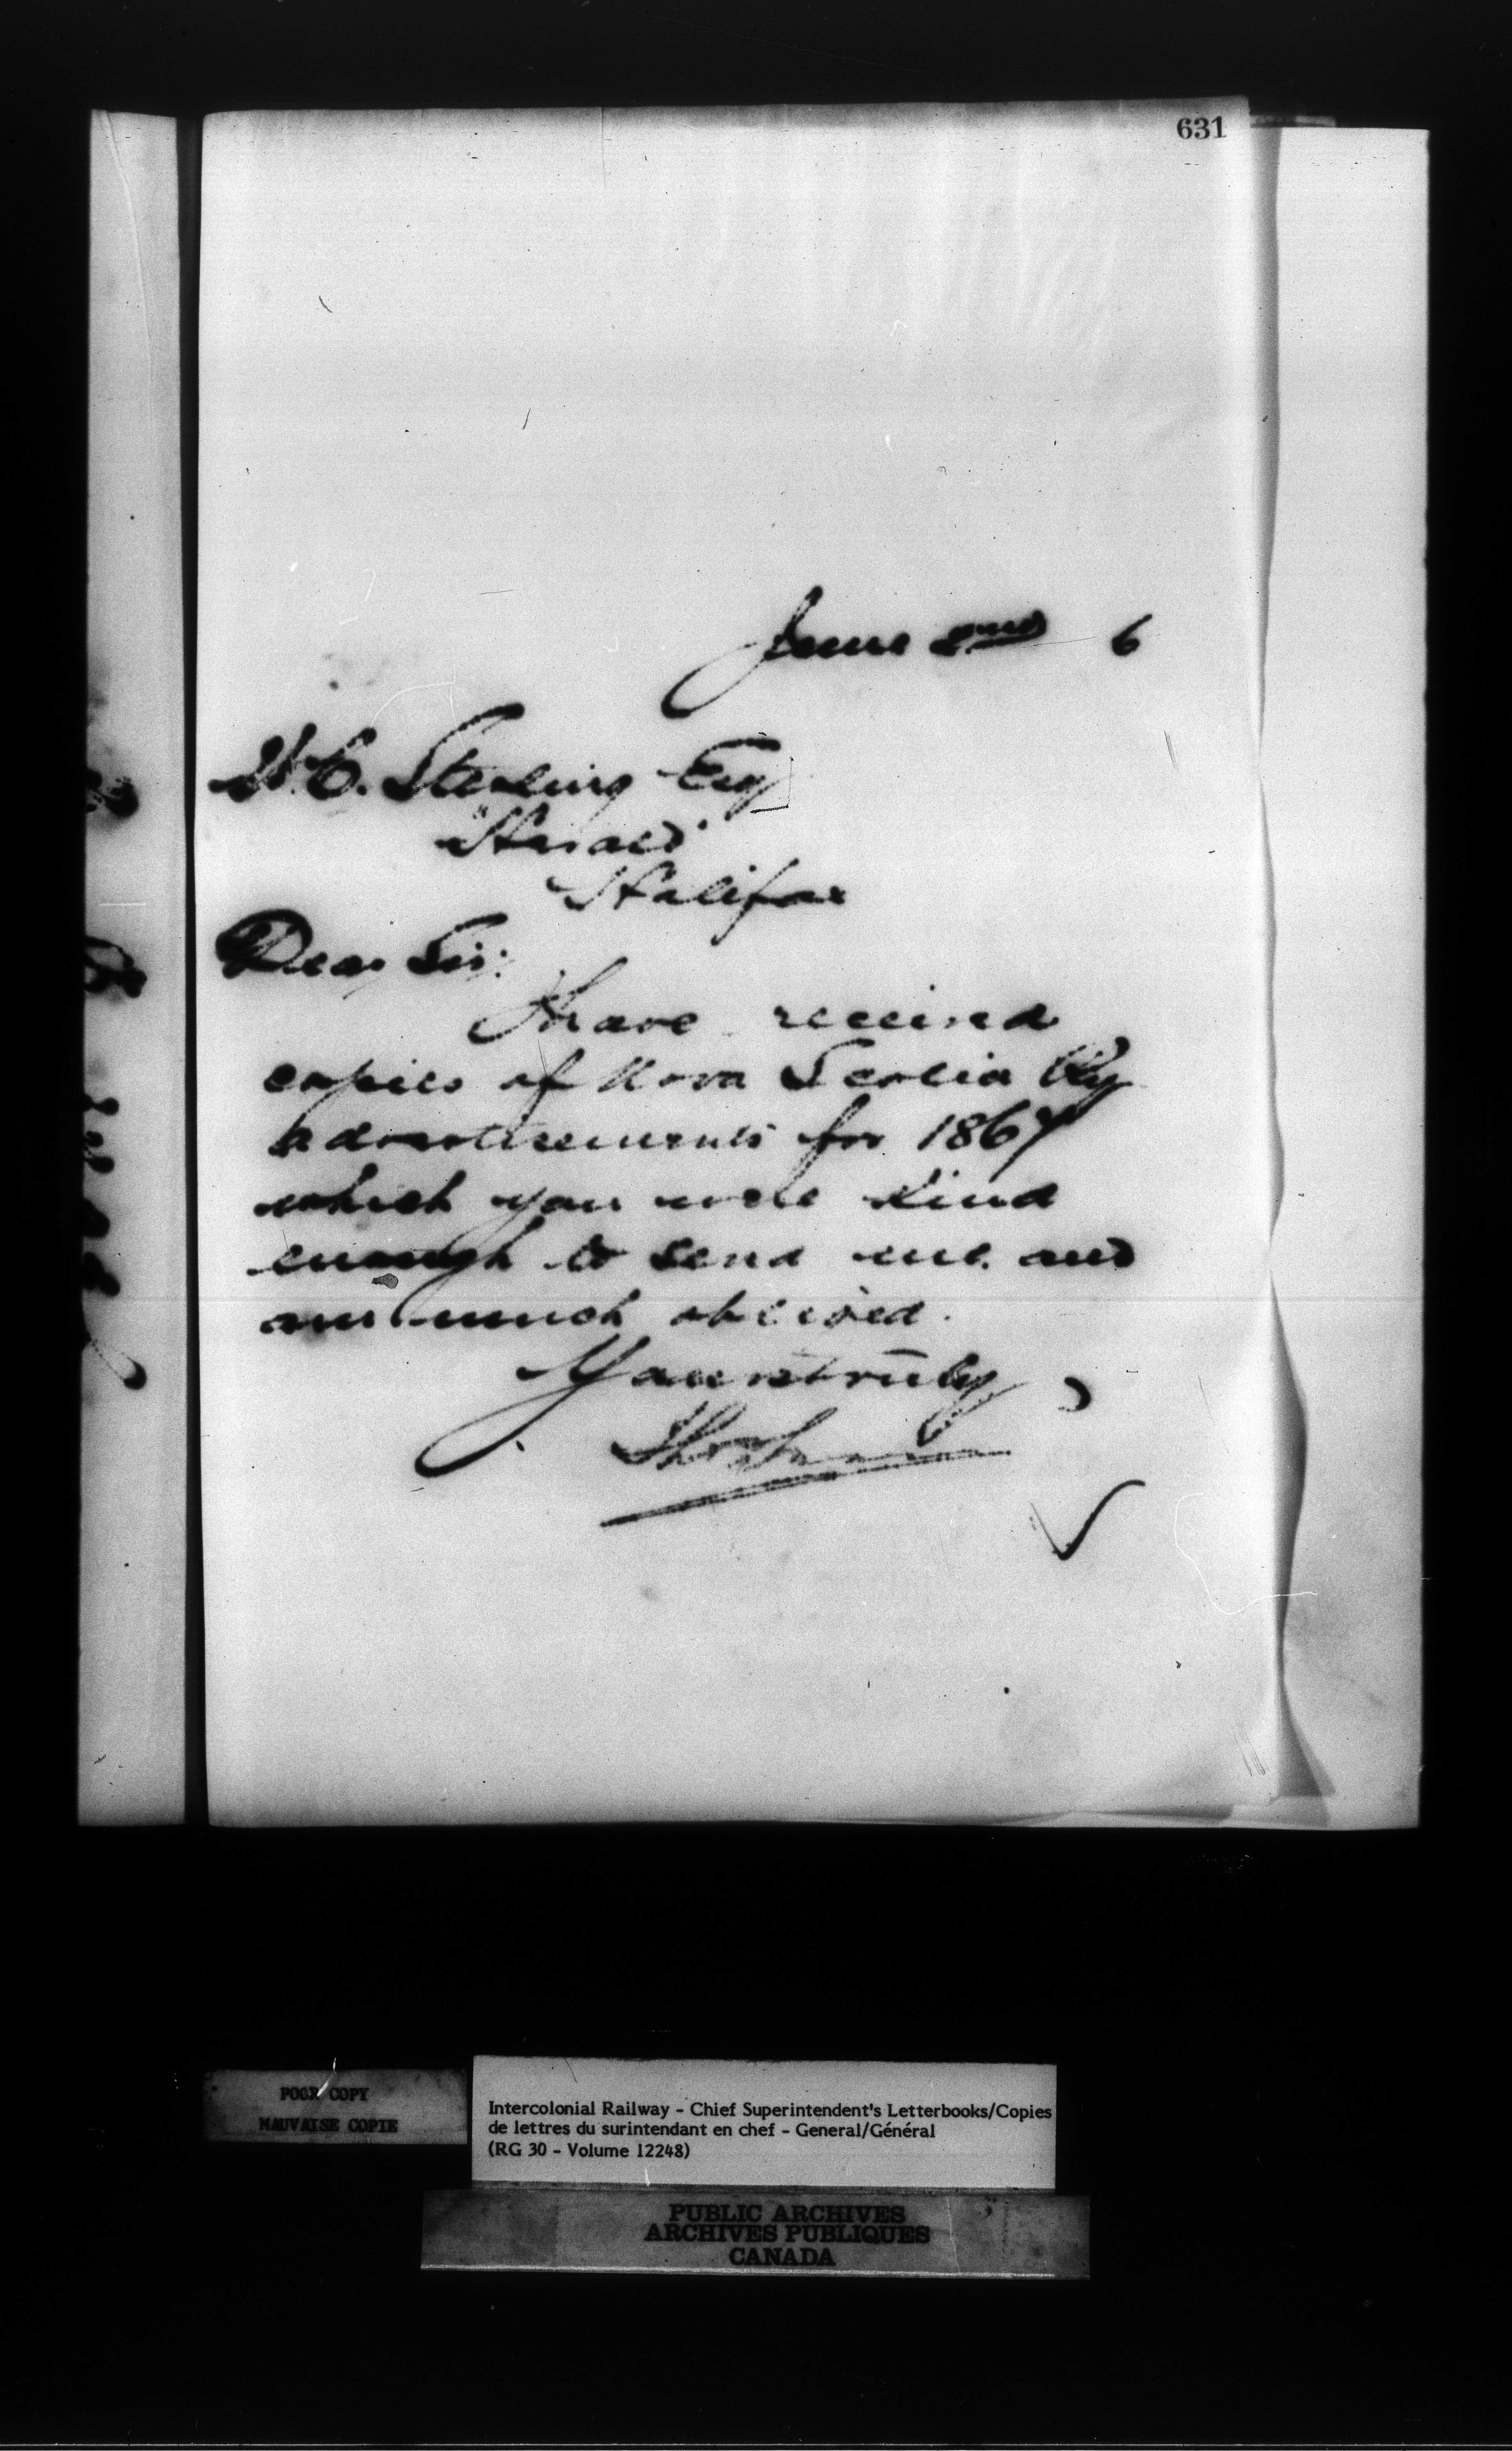 631
June 2nd 6
W.C. Sterling Esq
"Herald"
Halifax
Dear Sir:
I have received
copies of Nova Scotia Ry
advertisements for 1867
which you were kind
enough to send me. and
am much obliged.
Yours truly
POOR COPY
MAUVAISE COPIE
Intercolonial Railway - Chief Superintendent's Letterbooks/Copies
de lettres du surintendant en chef - General/Général
(RG 30 - Volume 12248)
PUBLIC ARCHIVES
ARCHIVES PUBLIQUES
CANADA